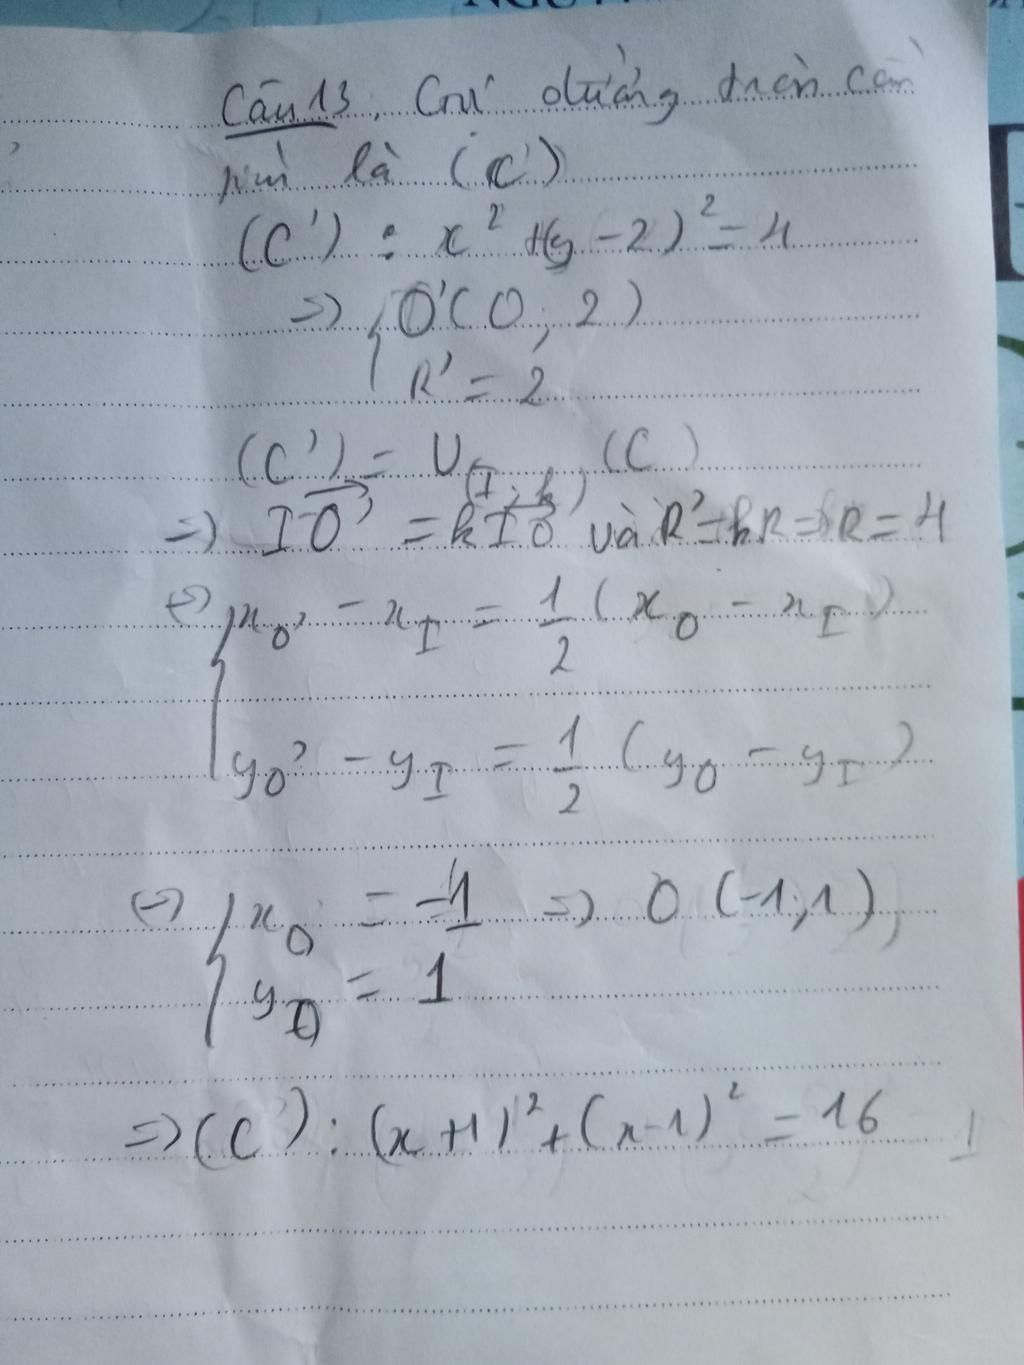 Câu 13. Gọi đường tròn cần
là (C)
(C') : x² + (y - 2)² = 4
=> { O'(0; 2)
R' = 2
(C') = V(I; k) (C)
=> IO' = kIO và R' = kR => R = 4
<=> { xO' - xI = 1/2 (xO - xI)
yO' - yI = 1/2 (yO - yI)
<=> { xO = -1 => O (-1; 1)
yO = 1
=> (C') : (x + 1)² + (x - 1)² = 16